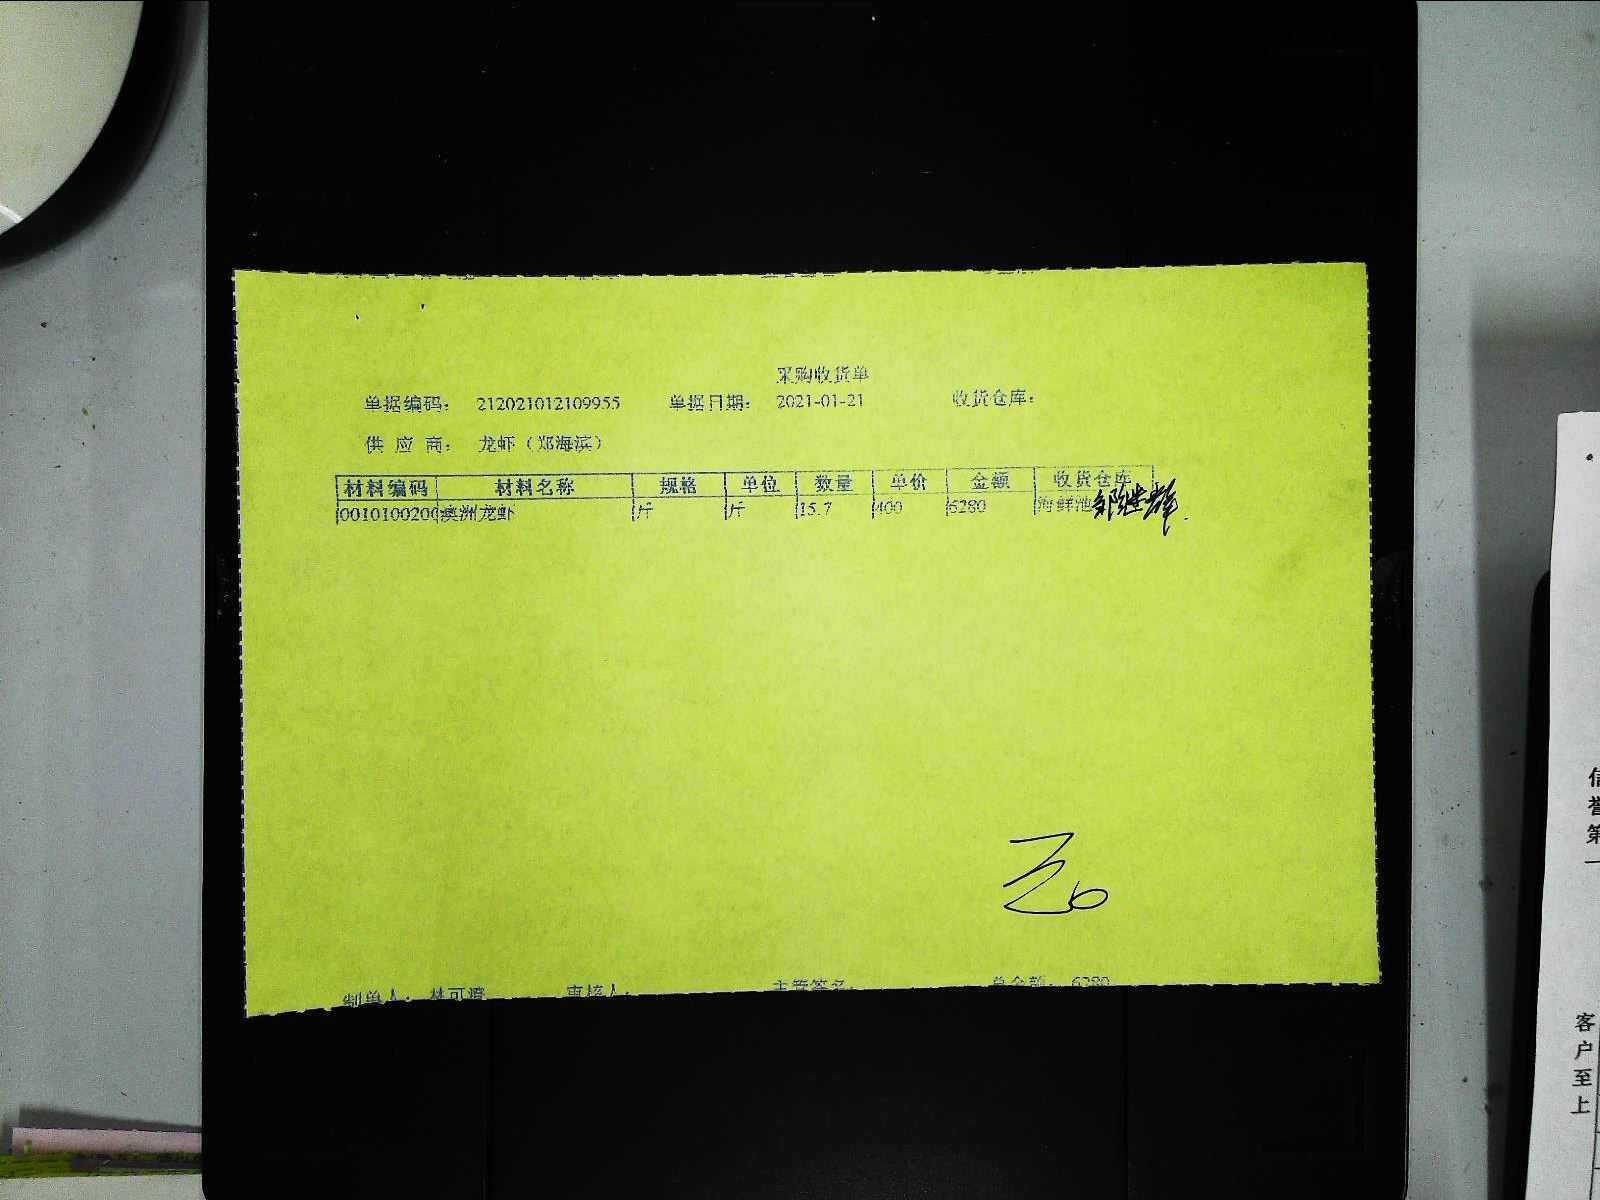 采购收货单
单据编码: 212021012109955 单据日期: 2021-01-21 收货仓库:
供应商: 龙虾（郑海滨）
材料编码 材料名称 规格 单位 数量 单价 金额 收货仓库
0010100200 澳洲龙虾 斤 斤 15.7 400 6280 海鲜池
制单人: 审核人: 主管签名: 总金额: 6280
信誉第一
客户至上